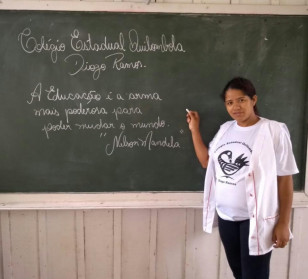 Colégio Estadual Quilombola
Diogo Ramos.
A Educação é a arma
mais poderora para
poder mudar o mundo.
"Nilson Mandela"